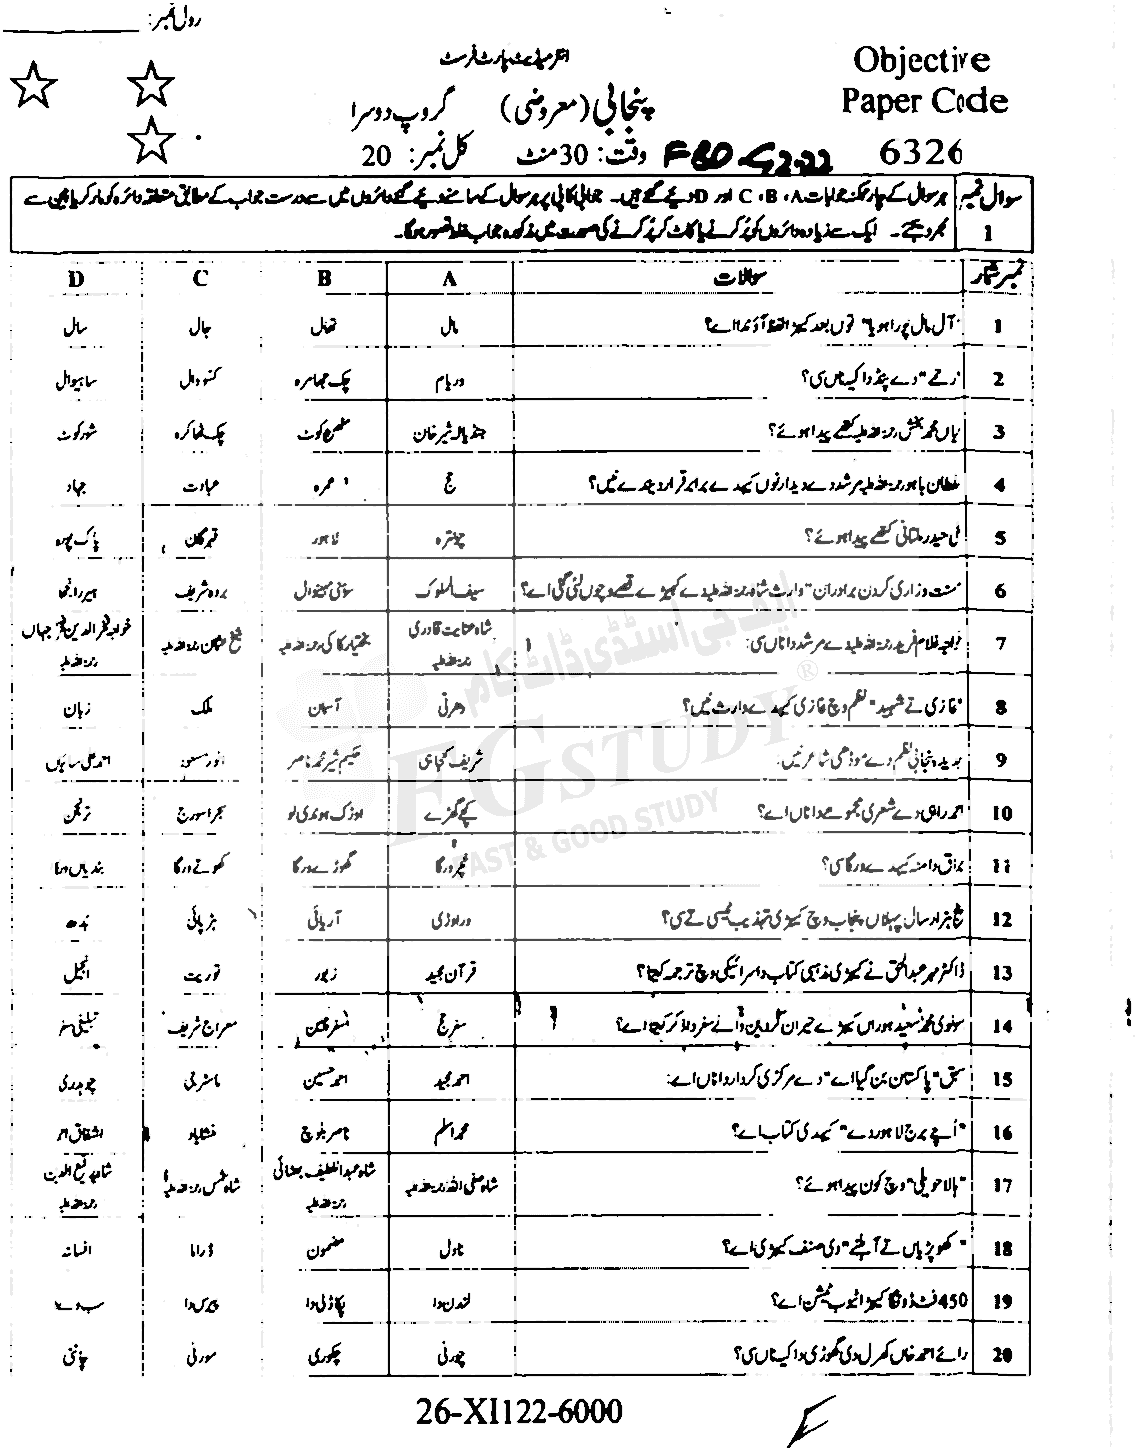 رول نمبر:
انٹرمیڈیٹ پارٹ فرسٹ
Objective
پنجابی (معروضی) گروپ دوسرا
Paper Code
وقت: 30 منٹ کل نمبر: 20
6326
سوال نمبر 1
ہر سوال کے چار ممکنہ جوابات A، B، C اور D دیے گئے ہیں۔ جوابی کاپی پر ہر سوال کے سامنے دیے گئے دائروں میں سے درست جواب کے مطابق متعلقہ دائرہ کو مارکر یا پین سے
بھر دیجئے۔ ایک سے زیادہ دائروں کو پُر کرنے یا کاٹ کر پُر کرنے کی صورت میں مذکورہ جواب غلط تصور ہوگا۔
نمبر شمار سوالات A B C D
1 "آل مال پورا ہویا" توں بعد کیہڑا لفظ آؤندا اے؟ مال تھال جال سال
2 دے پنڈ دا کیہ ناں سی؟ وریام چک جھامرہ ساہیوال
3 میاں محمد بخش رحمۃ اللہ علیہ کتھے پیدا ہوئے؟ جنڈیالہ شیر خان مٹھن کوٹ چک ٹھاکرہ شورکوٹ
4 سلطان باہو رحمۃ اللہ علیہ مرشد دے دیدار نوں کیہدے برابر قرار دیندے نیں؟ حج عمرہ عبادت جہاد
5 علی حیدر ملتانی کتھے پیدا ہوئے؟ چونترہ لاہور
6 منت و زاری کردن برادران "وارث شاہ رحمۃ اللہ علیہ دے کیہڑے قصے وچوں لئی گئی اے؟ سیف الملوک سوہنی مہینوال بردہ شریف ہیر رانجھا
7 خواجہ غلام فرید رحمۃ اللہ علیہ دے مرشد دا ناں سی: شاہ عنایت قادری رحمۃ اللہ علیہ بختیار کاکی رحمۃ اللہ علیہ خواجہ فخر الدین فخر جہاں رحمۃ اللہ علیہ
8 "غازی تے شہید" نظم وچ غازی کیہدے وارث نیں؟ دھرتی آسمان ملک زبان
9 جدید پنجابی نظم دے موڈھی شاعر نیں: شریف کنجاہی حکیم شیر محمد ناصر انور مسعود احمد علی سائیاں
10 احمد راہی دے شعری مجموعے دا ناں اے؟ کچے گھڑے اوڑک ہوندی لو ہجر اسورج ترنجن
11 براق دا منہ کیہدے ورگا سی؟ خچر ورگا گھوڑے ورگا کھوتے ورگا بندیاں ورگا
12 پنج ہزار سال پہلاں پنجاب وچ کیہڑی تہذیب وسدی سی؟ دراوڑی آریائی ہڑپائی بدھ
13 ڈاکٹر مہر عبدالحق نے کیہڑی مذہبی کتاب دا سرائیکی وچ ترجمہ کیتا؟ قرآن مجید زبور توریت انجیل
14 مولوی محمد سعید ہوراں کیہڑے حیران کر دین والے سفر دا ذکر کیتا اے؟ سفر حج سفر چین معراج شریف تبلیغی سفر
15 سبق "پاکستان بن گیا اے" دے مرکزی کردار دا ناں اے: احمد مجید احمد حسین ماشرجی چوہدری
16 "اُچے برج لاہور دے" کیہدی کتاب اے؟ محمد اسلم ناصر بلوچ منشا یاد اشفاق احمد
17 "ہالا حویلی" وچ کون پیدا ہوئے؟ شاہ صفی اللہ رحمۃ اللہ علیہ شاہ عبداللطیف بھٹائی رحمۃ اللہ علیہ شاہ شمس رحمۃ اللہ علیہ شاہ رفیع الدین رحمۃ اللہ علیہ
18 "کھوپڑیاں تے آہلنے" دی صنف کیہڑی اے؟ ناول مضمون ڈراما افسانہ
19 450 فٹ ڈونگا کیہڑا ٹیوب ٹیشن اے؟ لندن دا پکاڈلی دا پیرس دا
20 رائے احمد خاں کھرل دی گھوڑی دا کیہ ناں سی؟ چورنی چکوری مورنی چاننی
ایف جی اسٹڈی ڈاٹ کام
FG STUDY ®
FAST & GOOD STUDY
26-XI122-6000